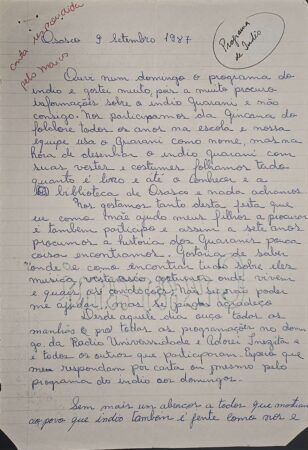 carta respondida
pelo Marco
Programa
de Indio
Osasco 9 Setembro 1987
Ouvi num domingo o programa do
indio e gostei muito, por a muito procuro
informações sobre o indio Guarani e não
consigo. Nos participamos da Gincana do
folclore todos os anos na escola e nossa
equipe usa o Guarani como nome, mas na
hora de desenhar o indio Guarani com
suas vestes e costumes folhamos tudo
quanto é livro e até a
biblioteca de Osasco e nada achamos
Nos gostamos tanto desta festa que
eu como mãe ajudo meus filhos a procurar
e também participo e assim a sete anos
procuramos a história dos Guaranis pouca
coisa encontramos. Gostaria de saber
onde e como encontrar tudo sobre eles
musica, vestuasio, costumes onde vivem
e quais as condições. Não sei se vão poder
me ajudar, mas se agradeço
Desde aquele dia ouço todas as
manhãs e todas as programações no domin
go da Radio Universidade e adorei Inezita e
e todos os outros que participaram. Espero que
me respondam por carta ou mesmo pelo
programa do indio aos domingos.
Sem mais um abraço a todos que mostram
ao povo que indio também é gente como nós e